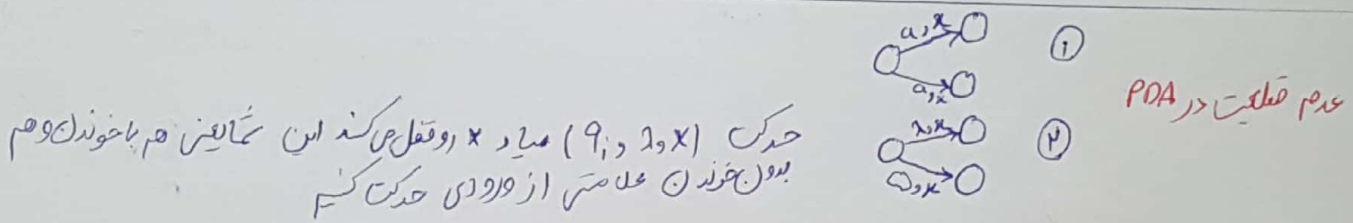 عدم قطعیت در PDA
①
a,x
a,x
②
λ,x
a,x
حرکت (qi, λ, x) میاد x رو قفل می‌کند این نمایش هم با خوندن و هم
بدون خوندن علامتی از ورودی حرکت کنیم